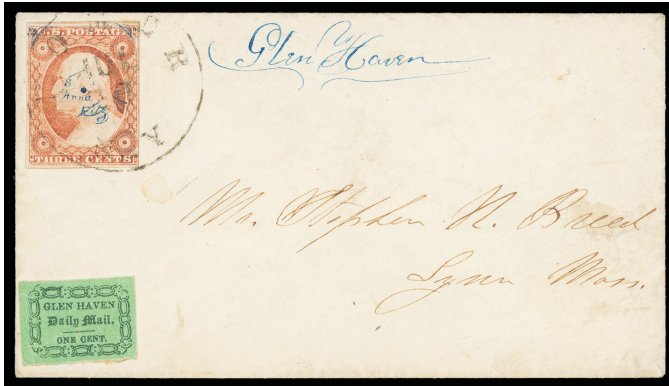 U.S. POSTAGE
THREE CENTS
Glen Haven
Mr. Stephen N. Breed
Lynn Mass.
GLEN HAVEN
Daily Mail.
ONE CENT.